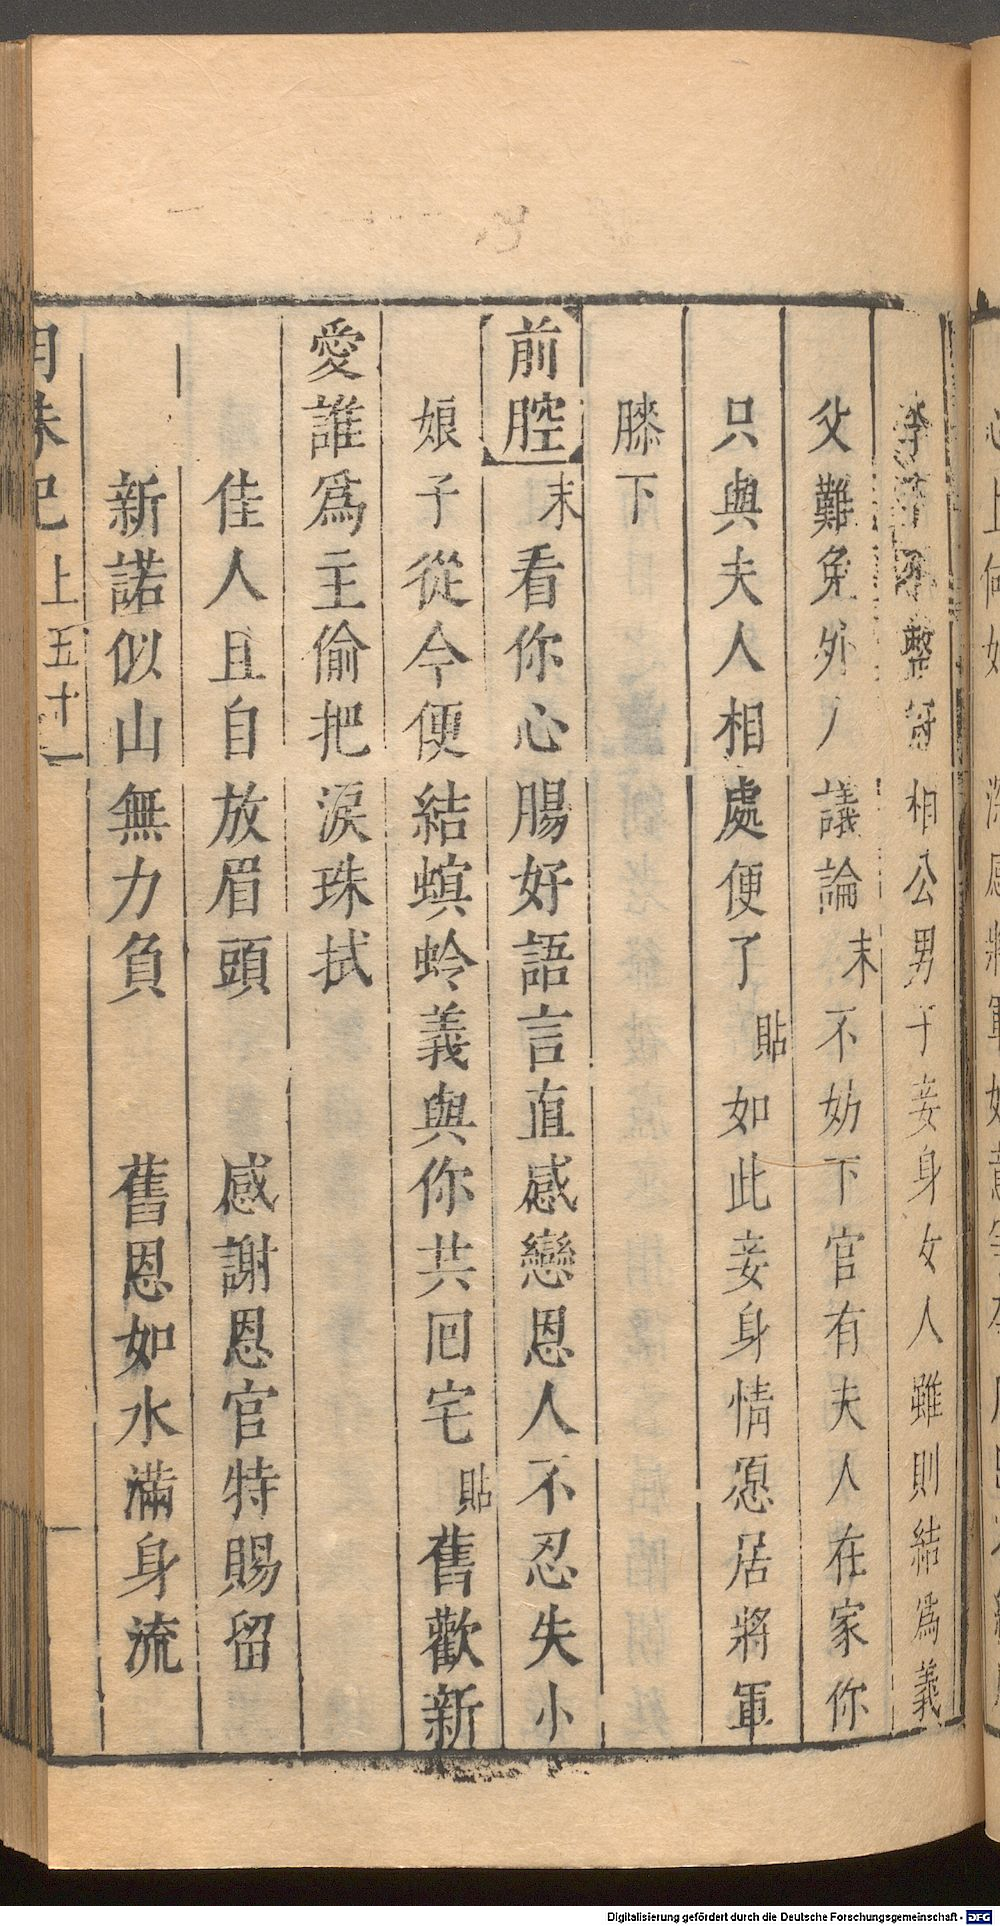 不整冠相公男子妾身女人雖則結爲義
父難免外人議論末不妨下官有夫人在家你
只與夫人相處便了貼如此妾身情愿居將軍
膝下
前腔末看你心腸好語言直感戀恩人不忍失小
娘子從今便結螟蛉義與你共囘宅貼舊歡新
愛誰爲主偷把淚珠拭
佳人且自放眉頭 感謝恩官特賜留
新諾似山無力負 舊恩如水滿身流
明珠記 上 五十一
Digitalisierung gefördert durch die Deutsche Forschungsgemeinschaft - DFG